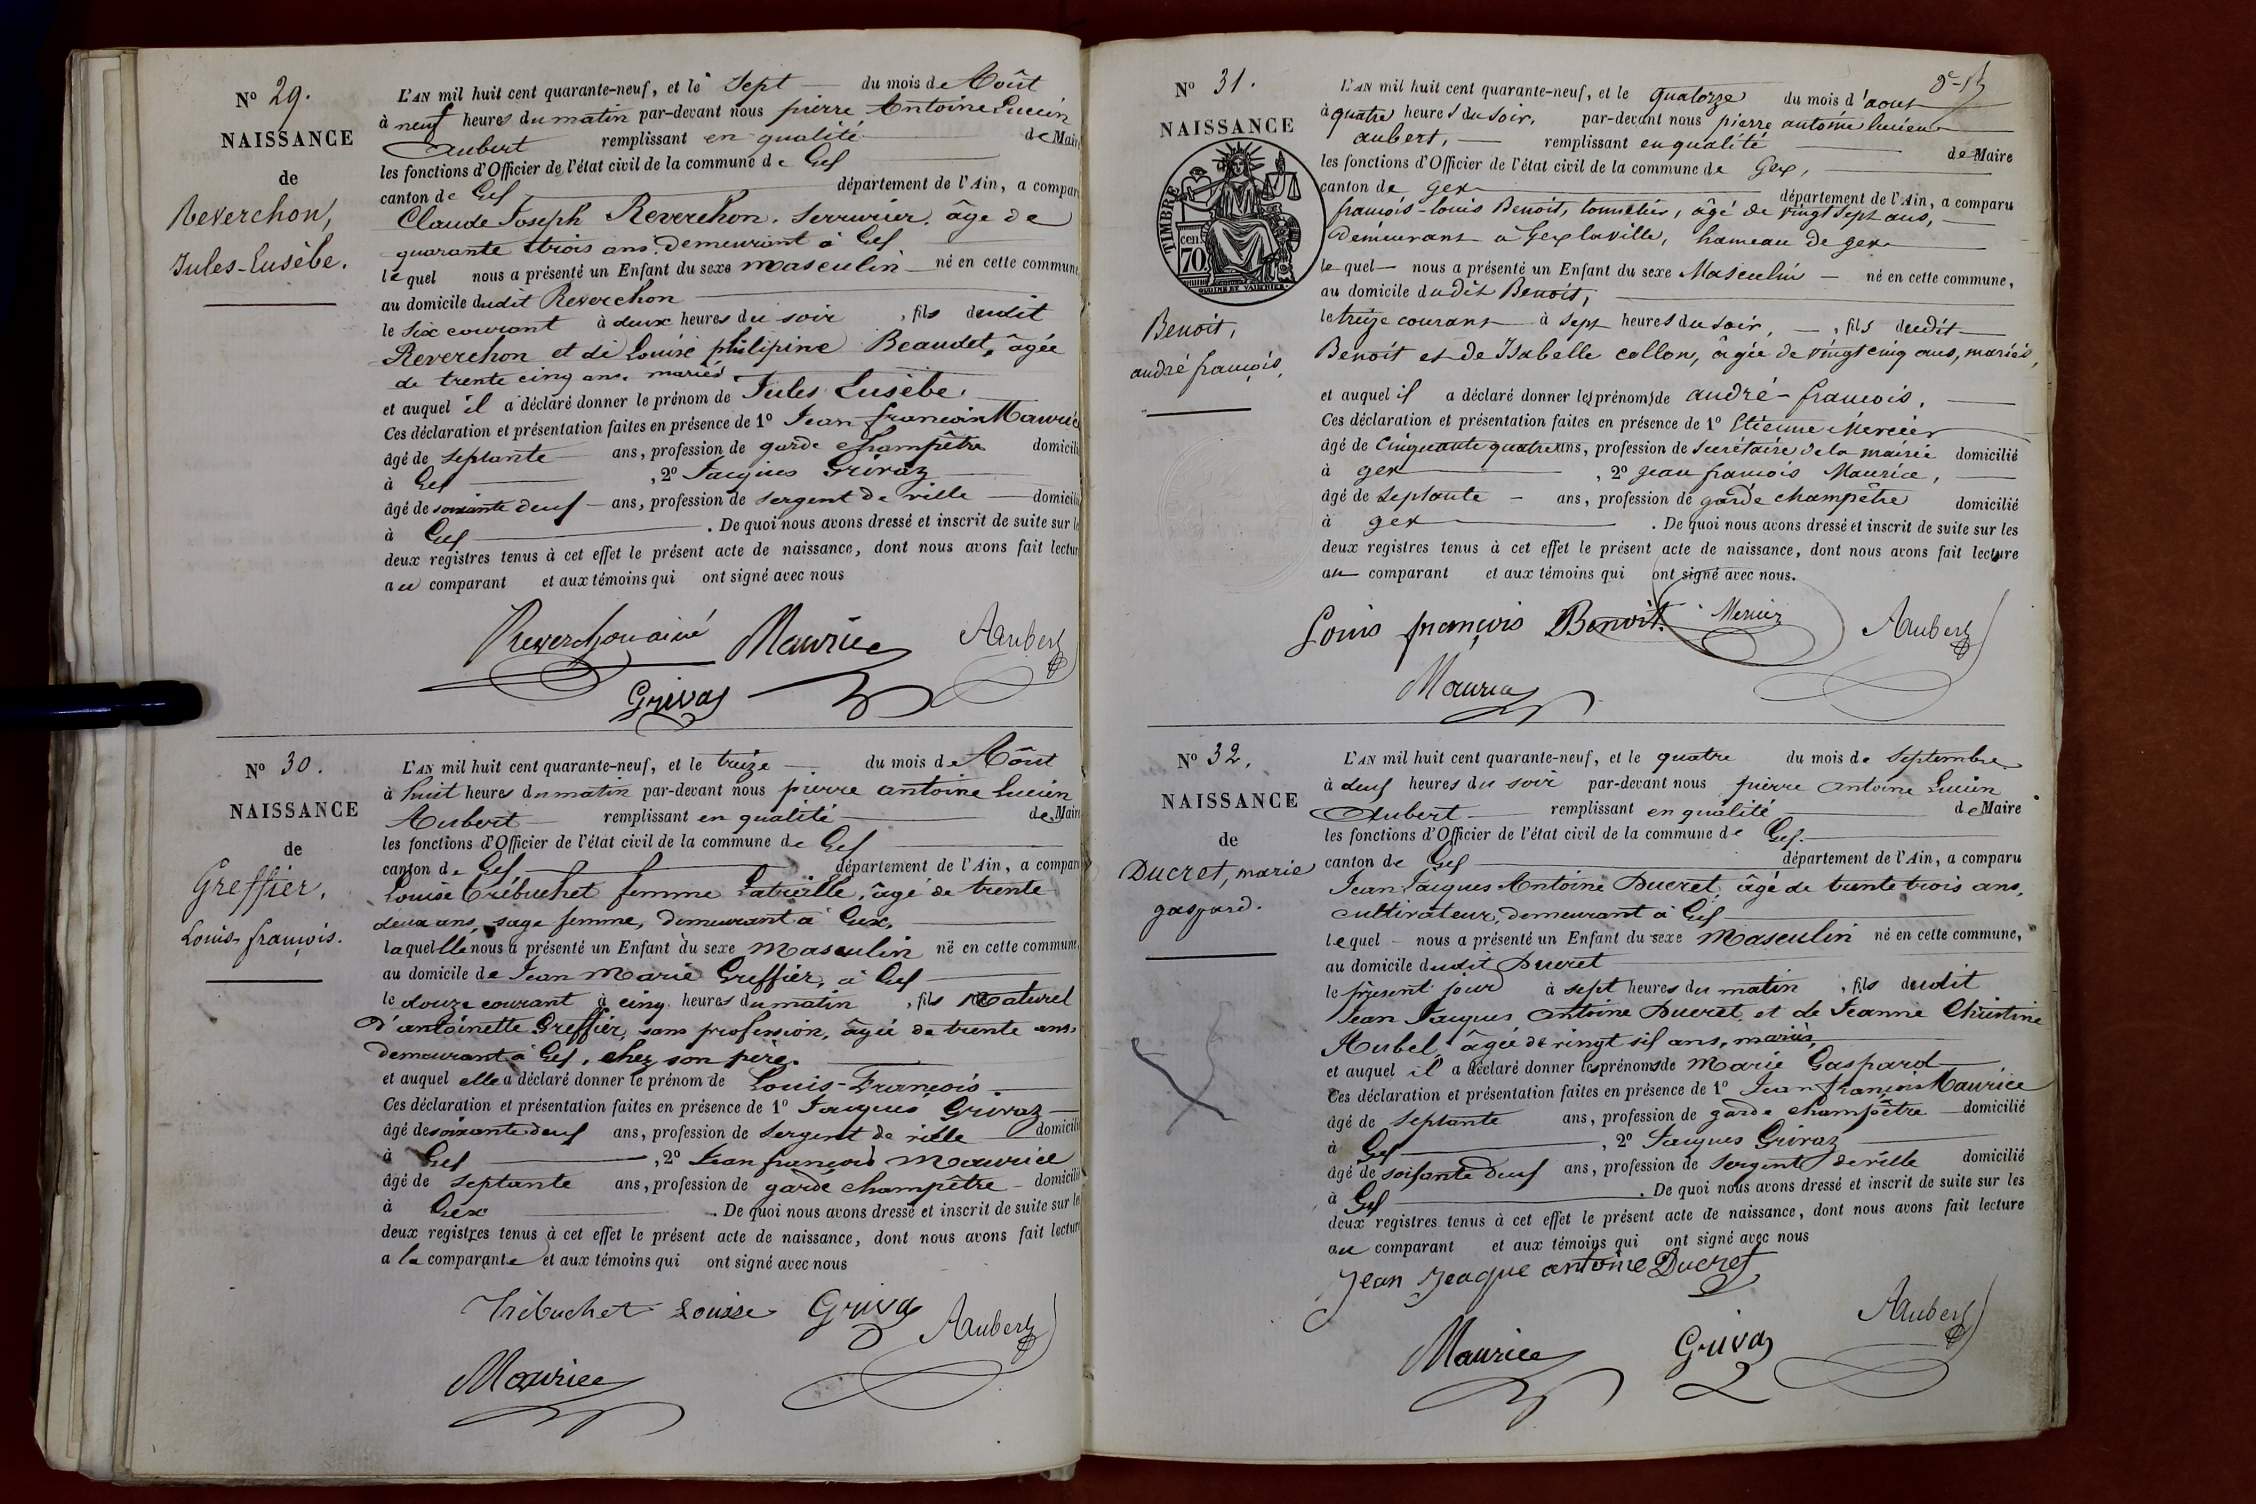 N° 29.
NAISSANCE
de
Reverchon,
Jules-Eusèbe.
L'AN mil huit cent quarante-neuf, et le Sept du mois de Août
à neuf heures du matin par-devant nous pierre Antoine Lucien
Aubert remplissant en qualité de Maire
les fonctions d'Officier de l'état civil de la commune de Gex
canton de Gex département de l'Ain, a compar
Claude Joseph Reverchon, Serrurier, âgé de
quarante trois ans, demeurant à Gex
lequel nous a présenté un Enfant du sexe masculin né en cette commune
au domicile dudit Reverchon
le six courant à deux heures du soir, fils dudit
Reverchon et de Louise philipine Beaudet, âgée
de trente cinq ans. mariés
et auquel il a déclaré donner le prénom de Jules Eusèbe.
Ces déclaration et présentation faites en présence de 1° Jean françois Maurice
âgé de Septante ans, profession de garde champêtre domicili
à Gex, 2° Jacques Grivaz
âgé de soixante deux ans, profession de sergent de ville domicili
à Gex. De quoi nous avons dressé et inscrit de suite sur le
deux registres tenus à cet effet le présent acte de naissance, dont nous avons fait lectur
au comparant et aux témoins qui ont signé avec nous
Reverchon ainé Maurice Aubert
Grivaz
N° 30.
NAISSANCE
de
Greffier,
Louis-françois.
L'AN mil huit cent quarante-neuf, et le treize du mois de Août
à huit heures du matin par-devant nous pierre antoine Lucien
Aubert remplissant en qualité de Maire
les fonctions d'Officier de l'état civil de la commune de Gex
canton de Gex département de l'Ain, a compar
Louise Trébuchet femme Latreille, âgé de trente
deux ans, sage femme, demeurant à Gex,
laquelle nous a présenté un Enfant du sexe masculin né en cette commune,
au domicile de Jean Marie Greffier, à Gex
le douze courant à cinq heures du matin, fils Naturel
d'antoinette Greffier, sans profession, âgée de trente ans,
demeurant à Gex, chez son père.
et auquel elle a déclaré donner le prénom de Louis-François
Ces déclaration et présentation faites en présence de 1° Jacques Grivaz
âgé de soixante deux ans, profession de Sergent de ville domicili
à Gex, 2° Jean françois Maurice
âgé de septante ans, profession de garde champêtre domicili
à Gex. De quoi nous avons dressé et inscrit de suite sur le
deux registres tenus à cet effet le présent acte de naissance, dont nous avons fait lectur
a la comparante et aux témoins qui ont signé avec nous
Trébuchet Louise Grivaz Aubert
Maurice
N° 31.
NAISSANCE
TIMBRE
cen
70
Benoit,
andré françois,
L'AN mil huit cent quarante-neuf, et le quatorze du mois d'aout
à quatre heures du soir, par-devant nous pierre antoine lucien
aubert, remplissant en qualité de Maire
les fonctions d'Officier de l'état civil de la commune de Gex,
canton de gex département de l'Ain, a comparu
françois-louis Benoit, tonnelier, âgé de vingt sept ans,
demeurant à Gex la ville, hameau de gex
lequel nous a présenté un Enfant du sexe Masculin né en cette commune,
au domicile dudit Benoit,
le treize courant à sept heures du soir, fils dudit
Benoit et de Isabelle collon, âgée de vingt cinq ans, mariés,
et auquel il a déclaré donner les prénoms de andré-françois.
Ces déclaration et présentation faites en présence de 1° Etienne Mercier
âgé de cinquante quatre ans, profession de secrétaire de la mairie domicilié
à gex, 2° jean françois Maurice,
âgé de septante ans, profession de garde champêtre domicilié
à gex. De quoi nous avons dressé et inscrit de suite sur les
deux registres tenus à cet effet le présent acte de naissance, dont nous avons fait lecture
au comparant et aux témoins qui ont signé avec nous.
Louis françois Benoit. Mercier Aubert
Maurice
N° 32.
NAISSANCE
de
Ducret, marie
gaspard.
L'AN mil huit cent quarante-neuf, et le quatre du mois de Septembre
à deux heures du soir par-devant nous pierre antoine Lucien
Aubert remplissant en qualité de Maire
les fonctions d'Officier de l'état civil de la commune de Gex.
canton de Gex département de l'Ain, a comparu
Jean Jacques Antoine Ducret, âgé de trente trois ans,
cultivateur, demeurant à Gex
lequel nous a présenté un Enfant du sexe Masculin né en cette commune,
au domicile dudit Ducret
le présent jour à sept heures du matin, fils dudit
Jean Jacques antoine Ducret et de Jeanne Christine
Hubel, âgée de vingt six ans, mariés,
et auquel il a déclaré donner les prénoms de Marie Gaspard
Ces déclaration et présentation faites en présence de 1° Jean françois Maurice
âgé de Septante ans, profession de garde champêtre domicilié
à Gex, 2° Jacques Grivaz
âgé de soixante deux ans, profession de sergent de ville domicilié
à Gex. De quoi nous avons dressé et inscrit de suite sur les
deux registres tenus à cet effet le présent acte de naissance, dont nous avons fait lecture
au comparant et aux témoins qui ont signé avec nous
Jean Jeaque antoine Ducret
Aubert
Maurice Grivaz